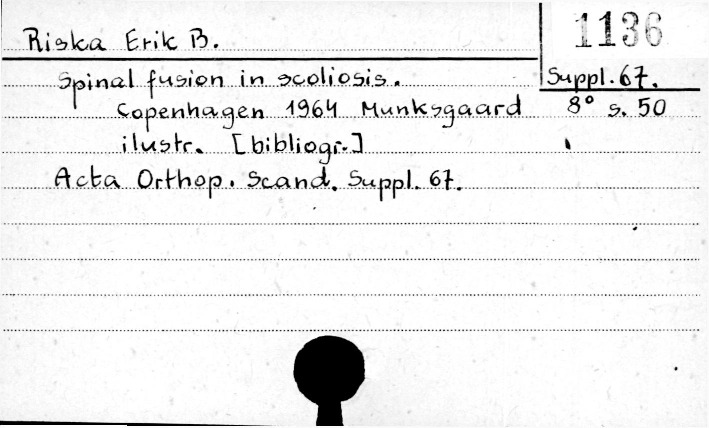 1136
Riska Erik B.
Suppl. 67.
Spinal fusion in scoliosis.
Copenhagen 1964 Munksgaard 8° s. 50
ilustr. [bibliogr.]
Acta Orthop. Scand. Suppl. 67.